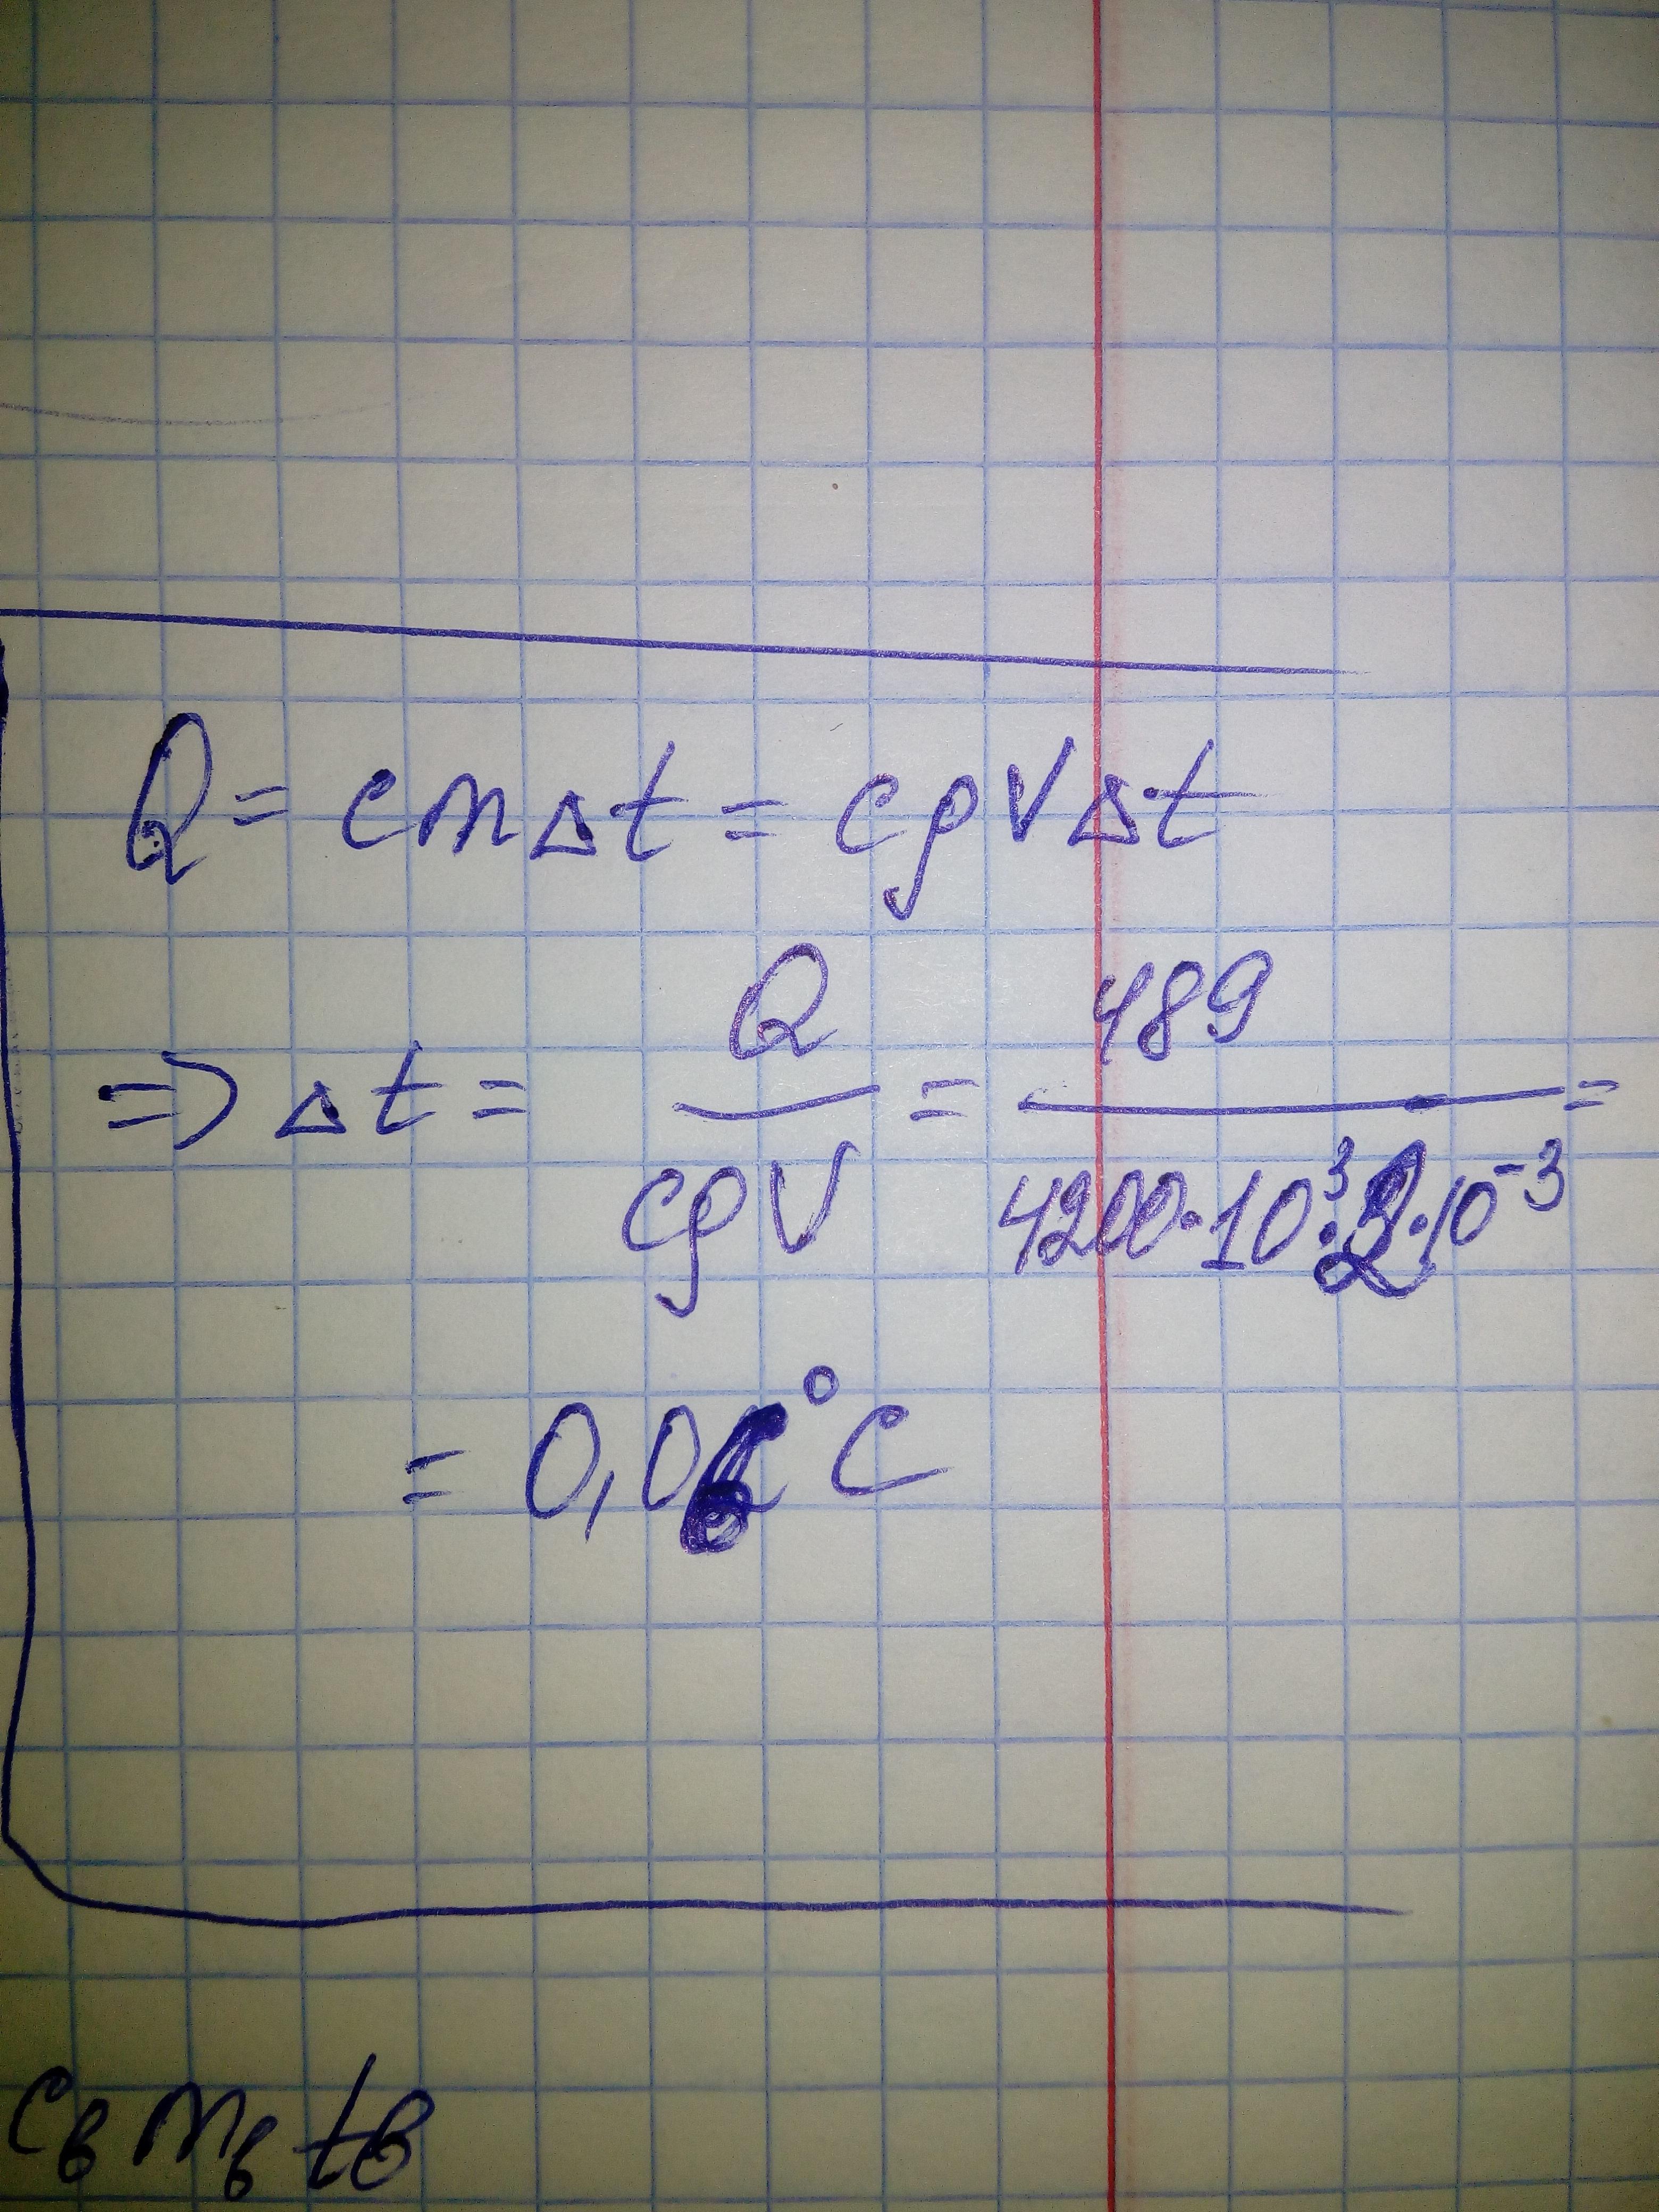 Q = cmΔt = cρVΔt
⇒ Δt = Q / cρV = 489 / 4200·10³·2·10⁻³ =
= 0,06°C
cв mв tв